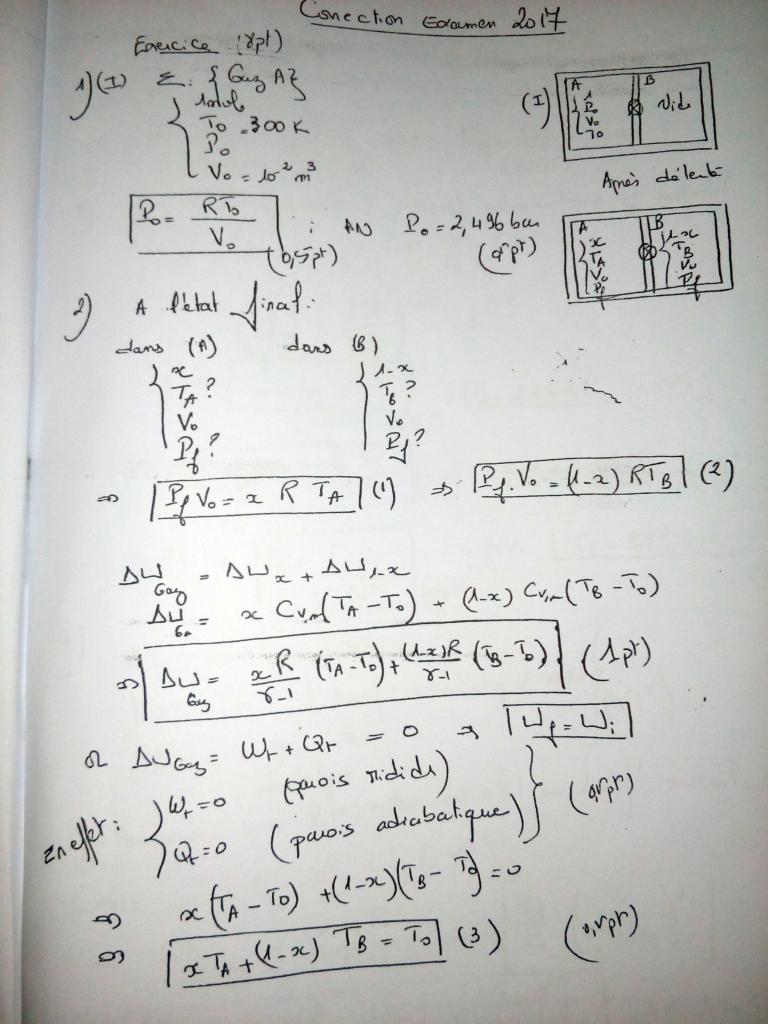 Correction Examen 2017
Exercice (8pt)
1) (I) Σ: { Gaz A}
1mol
T0 = 300 K
P0
V0 = 10^-2 m^3
(I)
A
1
P0
V0
T0
B
Vide
P0 = RT0 / V0 ; AN P0 = 2,496 bar
(0,5pt) (0,5pt)
Après détente
A
x
TA
V0
Pf
B
1-x
TB
V0
Pf
2) A l'état final:
dans (A) dans (B)
x 1-x
TA ? TB ?
V0 V0
Pf ? Pf ?
⇒ Pf V0 = x R TA (1) ⇒ Pf . V0 = (1-x) RTB (2)
ΔU Gaz = ΔUx + ΔU1-x
ΔU Gaz = x Cv,m (TA - T0) + (1-x) Cv,m (TB - T0)
⇒ ΔU Gaz = xR/γ-1 (TA - T0) + (1-x)R/γ-1 (TB - T0) (1pt)
or ΔU Gaz = WT + QT = 0 ⇒ Uf = Ui
En effet: WT = 0 (parois rigides)
QT = 0 (parois adiabatique) (0,5pt)
⇒ x(TA - T0) + (1-x)(TB - T0) = 0
⇒ xTA + (1-x) TB = T0 (3) (0,5pt)